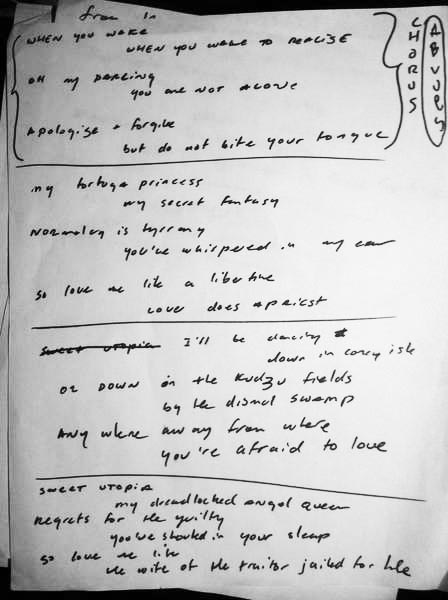 from In
WHEN YOU WAKE
WHEN YOU WAKE TO REALISE
OH my DARLING
you are NOT ALONE
Apologise + forgive
but do not bite your tongue
CHORUS
my tortuga princess
my secret fantasy
NORMALCY is tyranny
you've whispered in my ear
so love me like a libertine
LOVER does A PRIEST
sweet utopia I'll be dancing
down in coney isle
OR DOWN in the Kudzu fields
by the dismal swamp
Anywhere away from where
you're afraid to love
SWEET UTOPIA
my dreadlocked angel queen
Regrets for the guilty
you've shouted in your sleep
so love me like
the wife of the traitor jailed for life